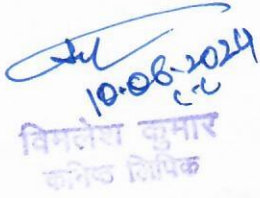 10-06-2024
विमलेश कुमार
कनिष्ठ लिपिक